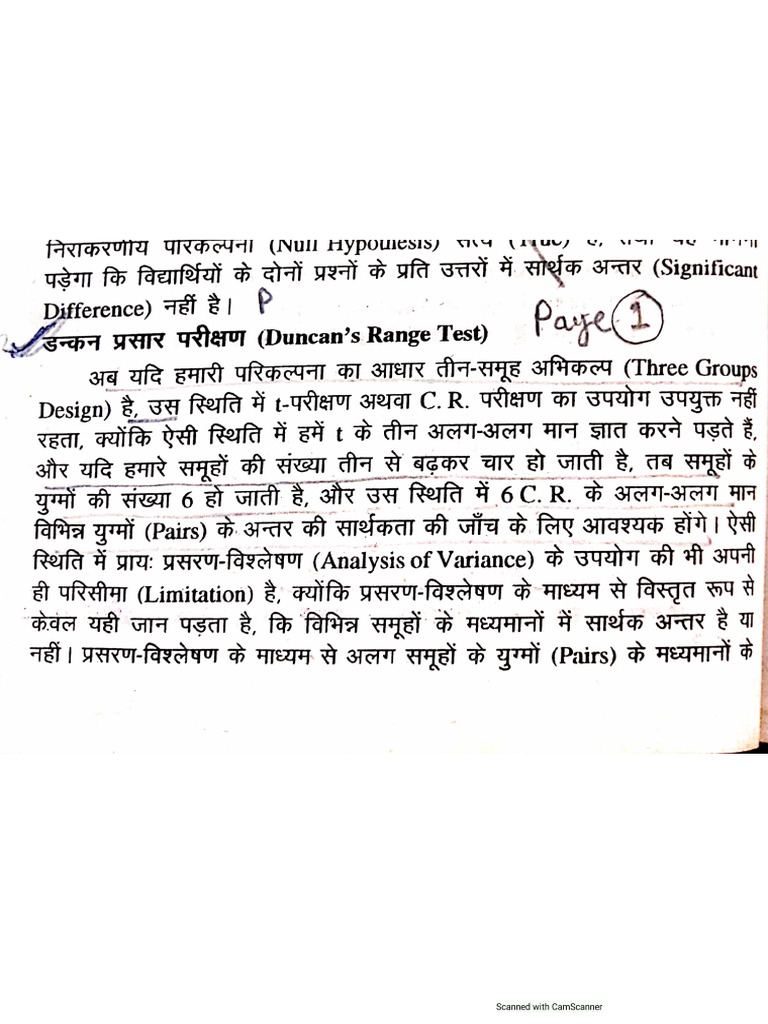 निराकरणीय परिकल्पना (Null Hypothesis) सत्य (True) है, तथा यह मानना
पड़ेगा कि विद्यार्थियों के दोनों प्रश्नों के प्रति उत्तरों में सार्थक अन्तर (Significant
Difference) नहीं है। P
Page 1
डन्कन प्रसार परीक्षण (Duncan's Range Test)
अब यदि हमारी परिकल्पना का आधार तीन-समूह अभिकल्प (Three Groups
Design) है, उस स्थिति में t-परीक्षण अथवा C. R. परीक्षण का उपयोग उपयुक्त नहीं
रहता, क्योंकि ऐसी स्थिति में हमें t के तीन अलग-अलग मान ज्ञात करने पड़ते हैं,
और यदि हमारे समूहों की संख्या तीन से बढ़कर चार हो जाती है, तब समूहों के
युग्मों की संख्या 6 हो जाती है, और उस स्थिति में 6 C. R. के अलग-अलग मान
विभिन्न युग्मों (Pairs) के अन्तर की सार्थकता की जाँच के लिए आवश्यक होंगे। ऐसी
स्थिति में प्रायः प्रसरण-विश्लेषण (Analysis of Variance) के उपयोग की भी अपनी
ही परिसीमा (Limitation) है, क्योंकि प्रसरण-विश्लेषण के माध्यम से विस्तृत रूप से
केवल यही जान पड़ता है, कि विभिन्न समूहों के मध्यमानों में सार्थक अन्तर है या
नहीं। प्रसरण-विश्लेषण के माध्यम से अलग समूहों के युग्मों (Pairs) के मध्यमानों के
Scanned with CamScanner